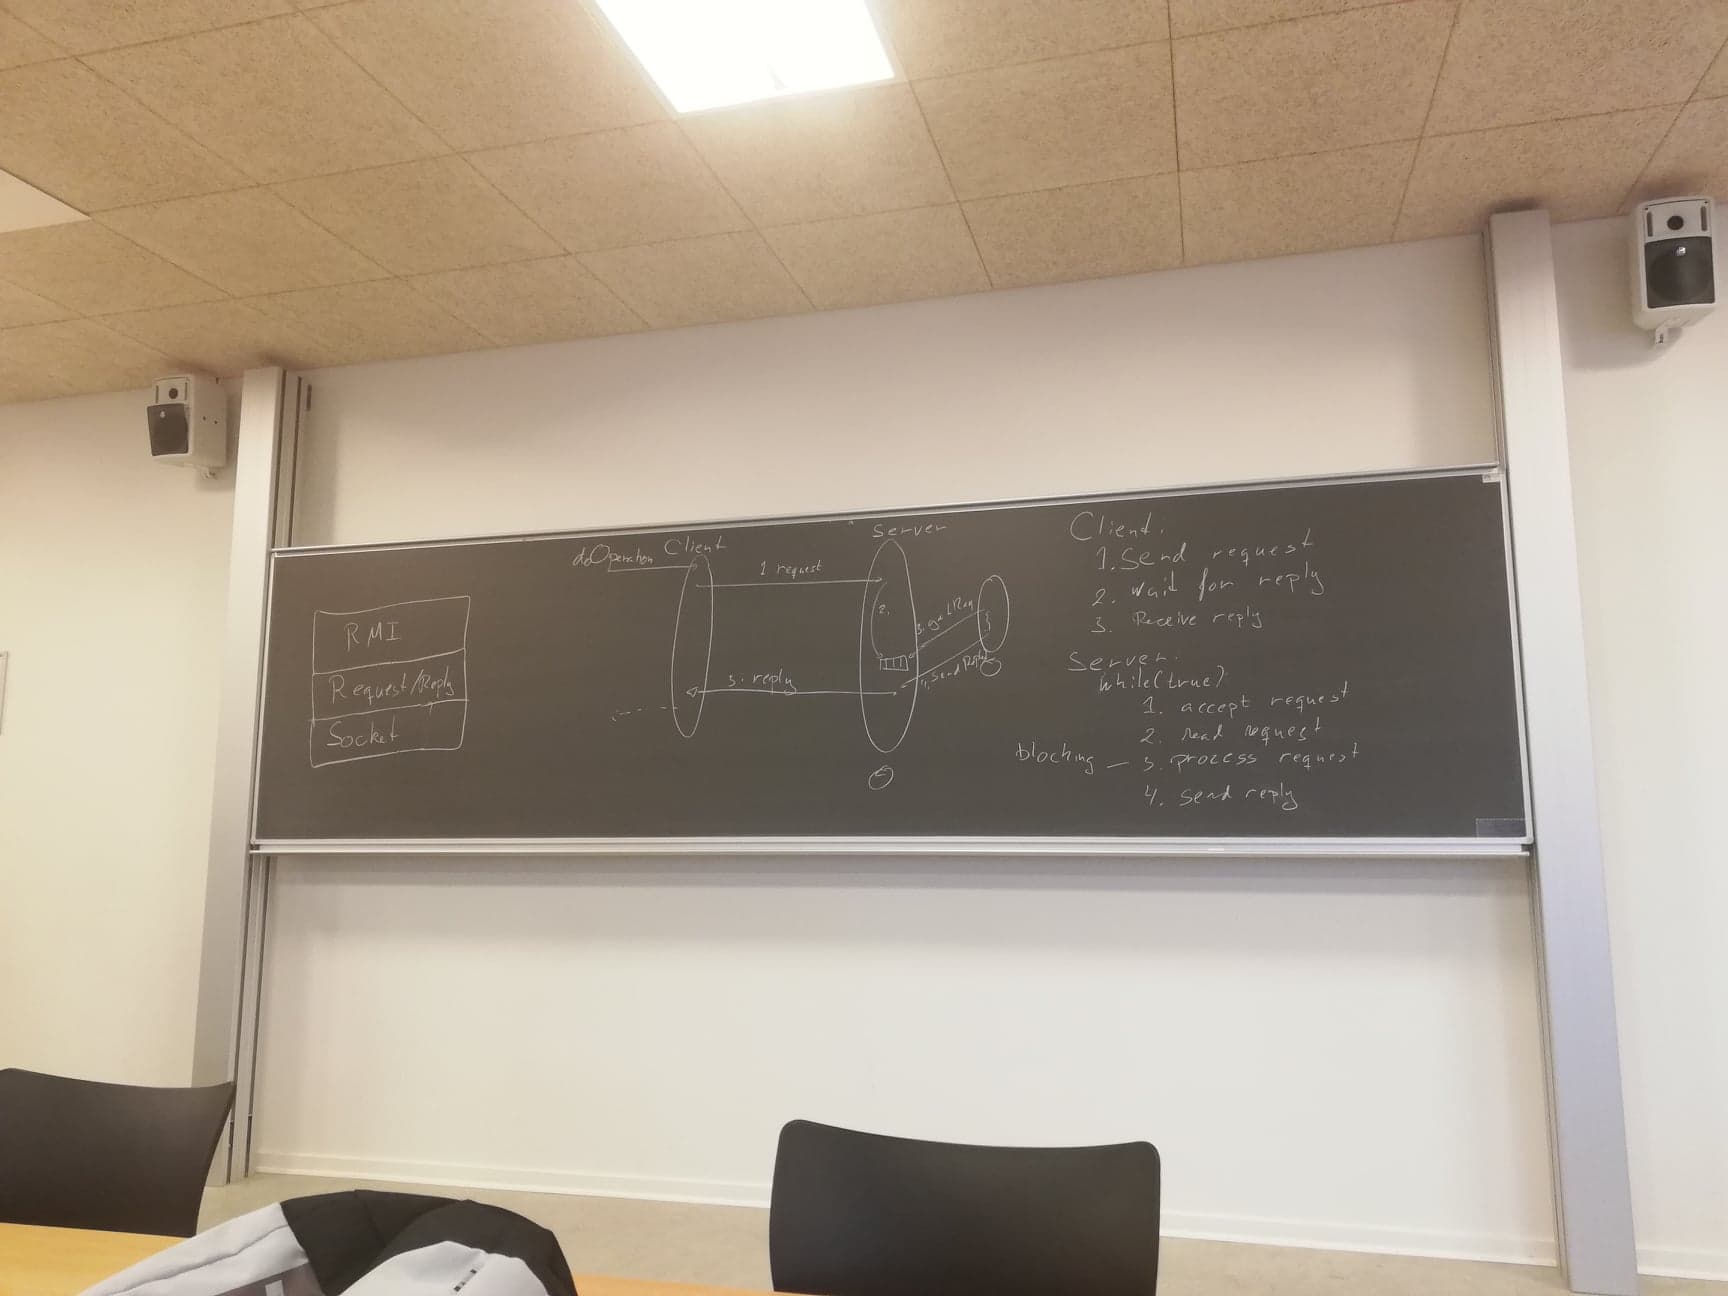 RMI
Request/Reply
Socket
doOperation
Client
Server
1 request
2.
3. getReq
4. send Reply
5. reply
Client.
1. Send request
2. wait for reply
3. Receive reply
Server.
while(true)
1. accept request
2. read request
blocking - 3. process request
4. send reply